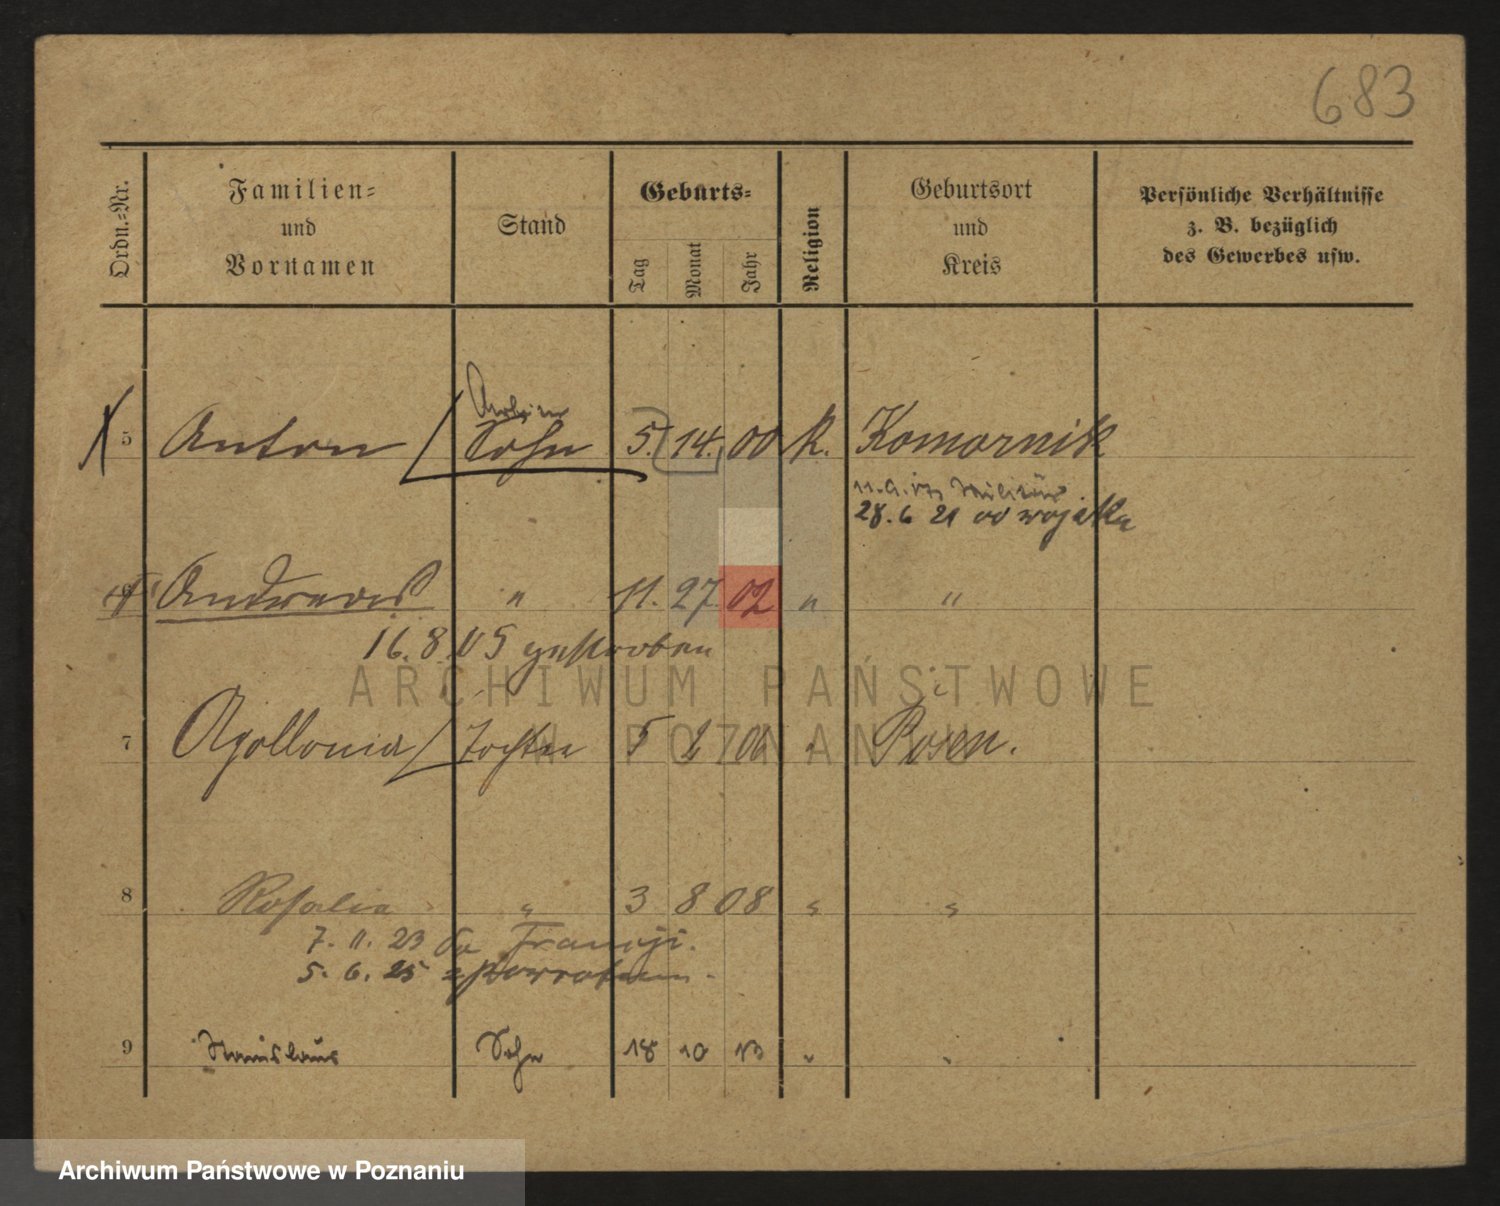 683
Ordn.-Nr. Familien- und Vornamen Stand Geburts- Tag Monat Jahr Religion Geburtsort und Kreis Persönliche Verhältnisse z. B. bezüglich des Gewerbes usw.
5 Anton Sohn 5. 14. 00 k. Komornik
Militär
28. 6 21 od wojska
6 Andreas " 11. 27. 02 " "
16. 8. 05 gestorben
7 Apollonia Tochter 5 2 06 " Posen.
8 Rosalia " 3 8 08 " "
7. 11. 23 do Francji.
5. 6. 25 z powrotem.
9 Stanislaus Sohn 18 10 13 " "
ARCHIWUM PAŃSTWOWE
W POZNANIU
Archiwum Państwowe w Poznaniu